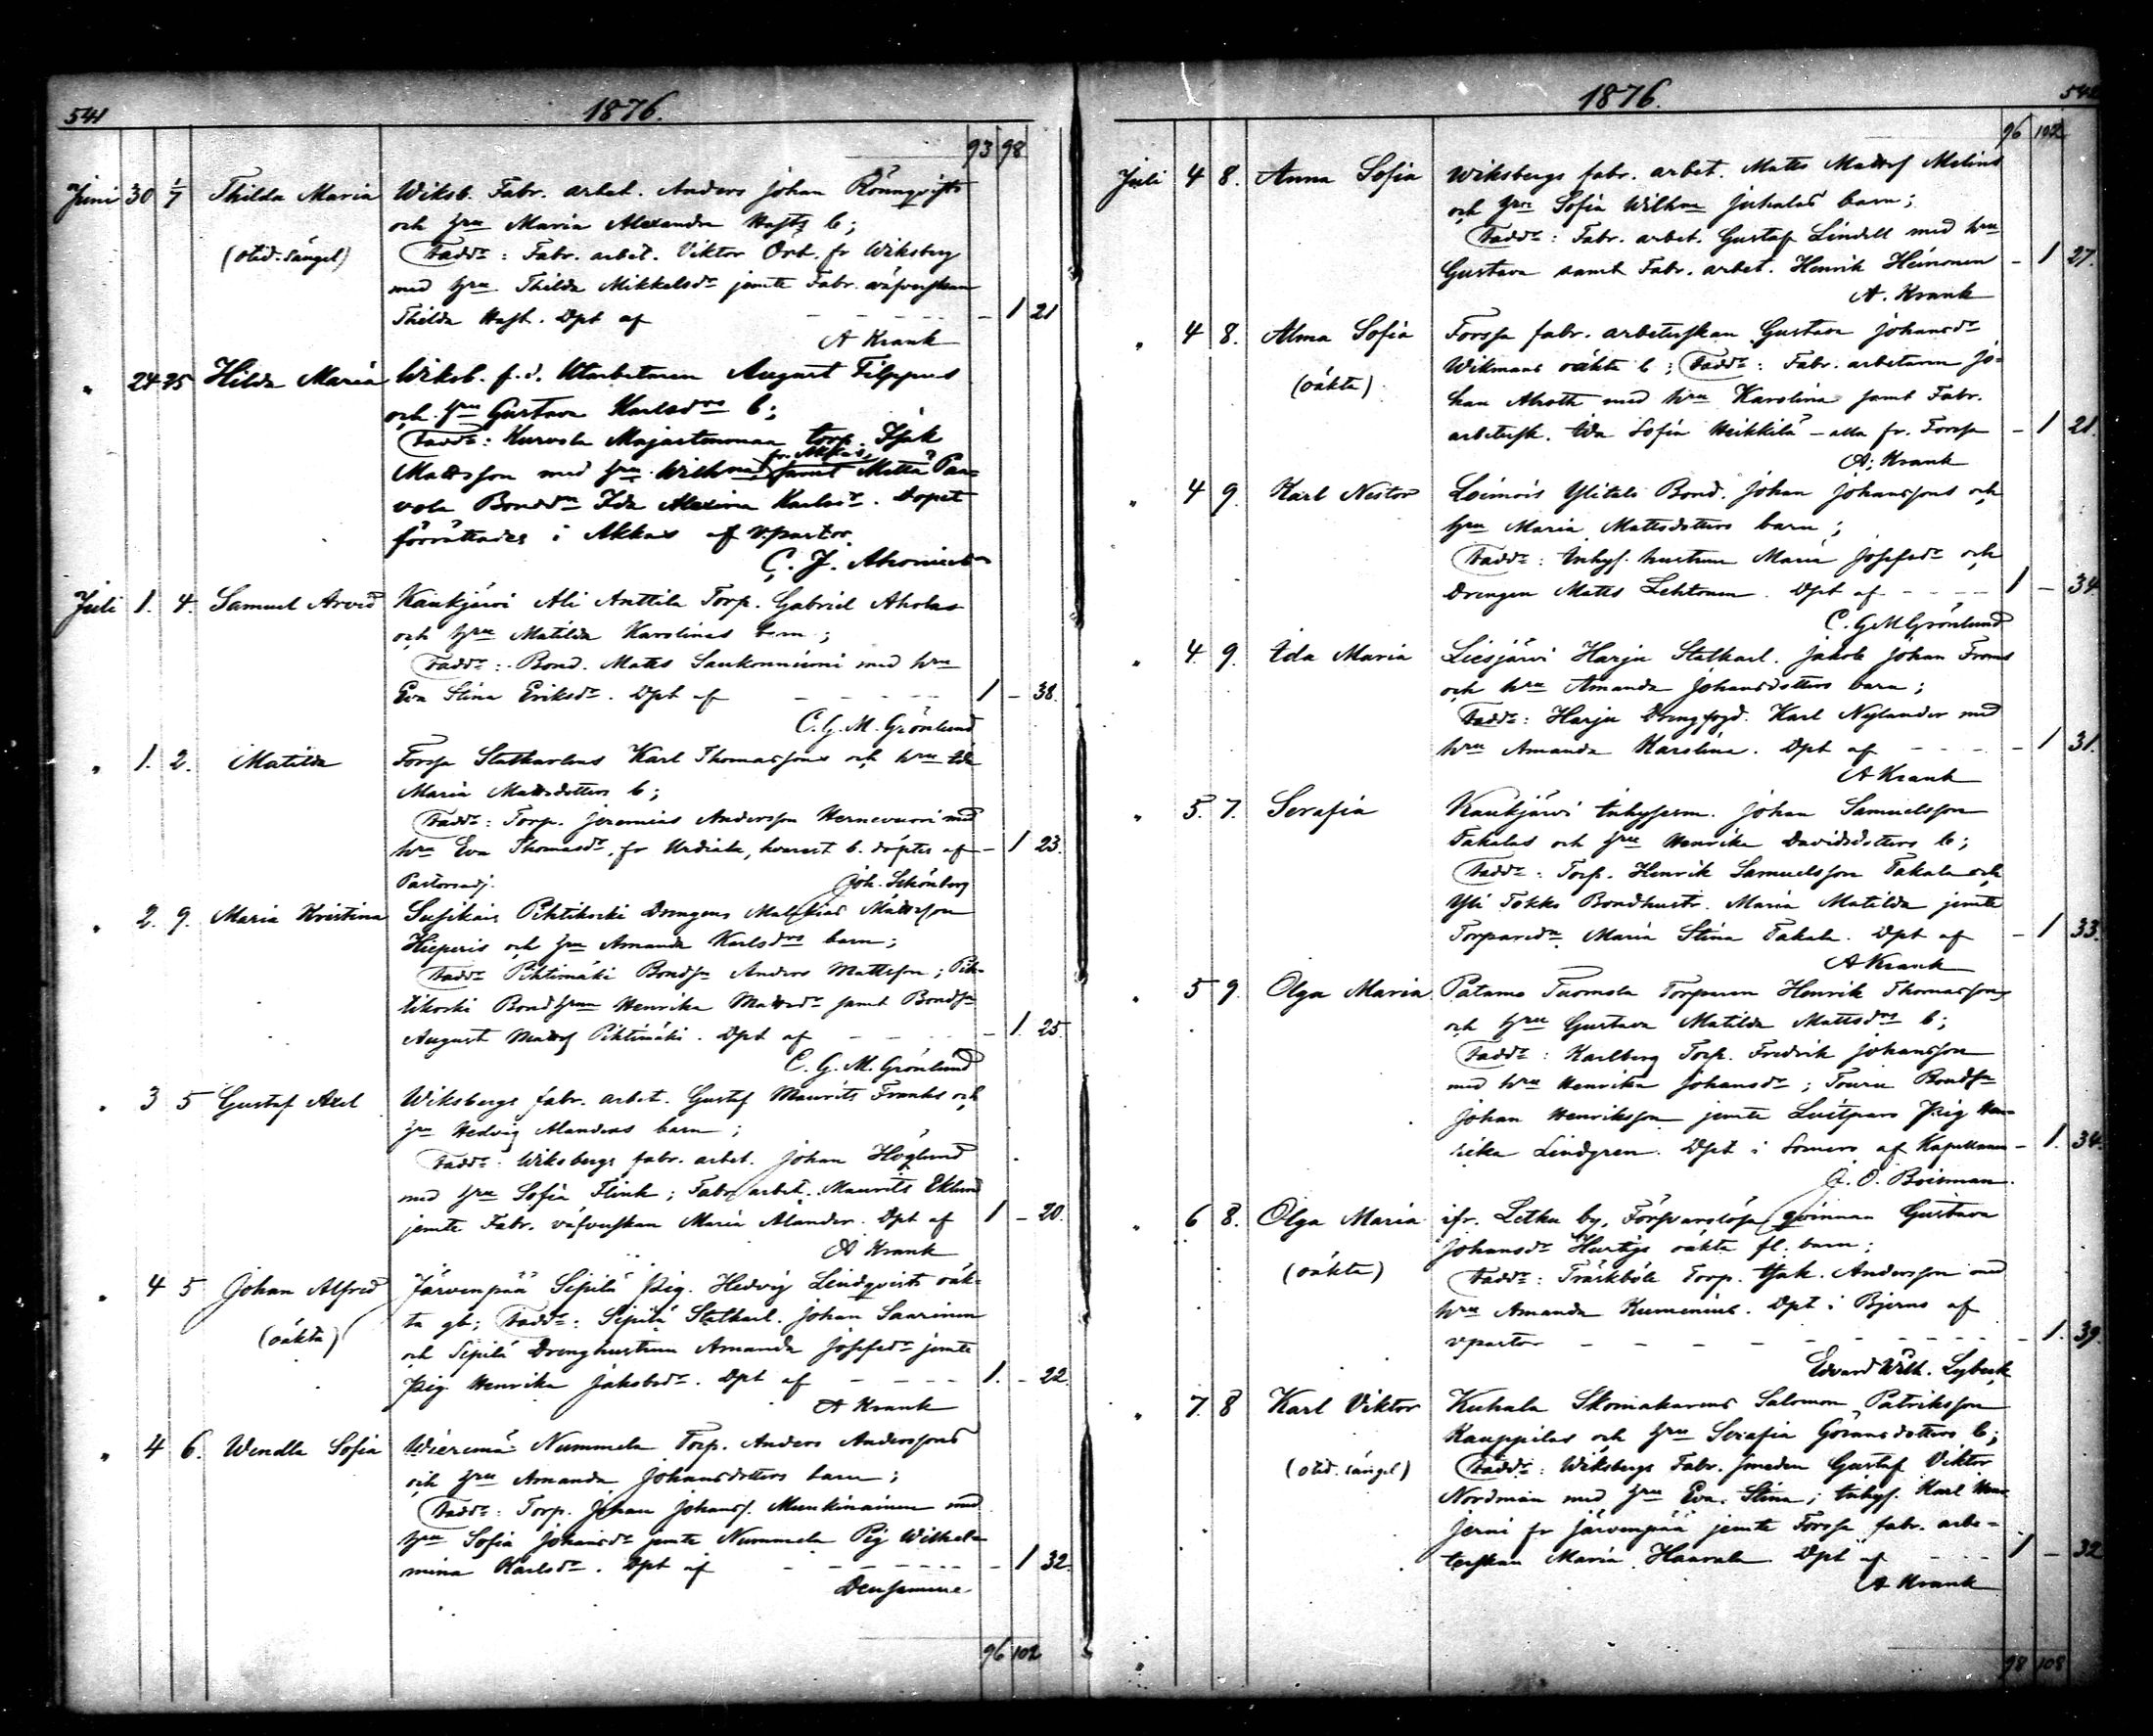 541 1876.
93 98
Juni 30 1/7 Thilda Maria Wiksb. Fabr. arbet. Anders Johan Rönnqvists
och hru Maria Alexandra Hasts b;
(otid. sängel) Faddr: Fabr. arbet. Viktor Ört. fr Wiksberg
med hru Thilda Mikkelsdr jemte Fabr. väfverskan
Thilda Hast. Dpt af - 1 21
A Krank
" 24 25 Hilda Maria Wiksb. f.d. Utarbetaren August Filppus
och hru Gustava Karlsdrs b;
Faddr: Kurvola Majastenmaa torp. Isak
fr. Akkas,
Mattsson med hru Wilhna, samt Mettä Paa-
vola Bonddr Ida Alexina Karlsdr. Dopet
förrättades i Akkas af v.pastor
C. J.
Juli 1. 4. Samuel Arvid Kaukjärvi Ali Anttila Torp. Gabriel Aholas
och hru Matilda Karolinas barn;
Faddr: Bond. Matts Saukonniemi med hru
Eva Stina Eriksdr. Dpt af 1 - 38.
C. G. M. Grönlund
" 1. 2. Matilda Forssa Statkarlens Karl Thomassons och hru Ida
Maria Mattsdotters b;
Faddr: Torp. Jeremias Andersson Hernevuori med
hru Eva Thomasdr, fr Urdiala, hvarest b. döptes af - 1 23.
Pastorsadj. Joh. Schönberg
" 2. 9. Maria Kristina Susikais Pihtikoski Drengens Malakias Mattsson
Hieperis och hru Amanda Karlsdrs barn;
Faddr Pihtimäki Bondsn Anders Mattsson; Pih-
tikoski Bondhrun Henrika Mattsdr samt Bondsn
August Mattss Pihtimäki. Dpt af - 1. 25.
C. G. M. Grönlund
" 3 5 Gustaf Axel Wiksbergs fabr. arbet. Gustaf Maurits Franks och
hru Hedvig Alanders barn;
Faddr: Wiksbergs fabr. arbet. Johan Höglund
med hru Sofia Flink; Fabr arbet. Maurits Eklund
jemte Fabr. väfverskan Maria Alander. Dpt af 1 - 20.
A Krank
" 4 5 Johan Alfred Järvenpää Sipilä Pig. Hedvig Lindqvists oäk-
(oäkta) ta gb; Faddr: Sipilä Statkarl. Johan Saarinen
och Sipilä Drenghustrun Amanda Josefsdr jemte
Pig Henrika Jakobsdr. Dpt af 1. - 22.
A Krank
" 4 6. Wendla Sofia Wieremä Nummela Torp. Anders Anderssons
och hru Amanda Johansdotters barn;
Faddr: Torp. Johan Johanss. Munkinainen med
hru Sofia Johansdr jemte Nummela Pig Wilhel-
mina Karlsdr. Dpt af - 1 32.
Densamme
96 102
1876. 542
96 102
Juli 4 8. Anna Sofia Wiksbergs fabr. arbet. Matts Mattss Melins
och hru Sofia Wilhna Juhalas barn;
Faddr: Fabr. arbet. Gustaf Lindell med hru
Gustava samt Fabr. arbet. Henrik Heinonen - 1 27.
A. Krank
" 4 8. Alma Sofia Forssa fabr. arbeterskan Gustava Johansdr
(oäkta) Wikmans oäkta b; Faddr: Fabr. arbetaren Jo-
han Ahroth med hru Karolina samt Fabr.
arbetersk. Ida Sofia Heikkilä - alla fr. Forssa - 1 21.
A. Krank
" 4 9. Karl Nestor Loimois Ylitalo Bond. Johan Johanssons och
hru Maria Mattsdotters barn;
Faddr: Inhys. hustrun Maria Josefsdr och
Drengen Matts Lehtonen. Dpt af 1 - 34
C. G M Grönlund
" 4. 9. Ida Maria Liesjärvi Harju Statkarl. Jakob Johan Froms
och hru Amanda Johansdotters barn;
Faddr: Harju Drengfogd. Karl Nylander med
hru Amanda Karolina. Dpt af - 1 31.
A Krank
" 5. 7. Serafia Kaukjärvi Inhysesm. Johan Samuelsson
Takalas och hru Henrika Davidsdotters b;
Faddr: Torp. Henrik Samuelsson Takala och
Yli Tokko Bondhustr. Maria Matilda jemte
Torparedr. Maria Stina Takala. Dpt af - 1 33.
A Krank
" 5 9. Olga Maria Patamo Tuomola Torparen Henrik Thomassons
och hru Gustava Matilda Mattsdrs b;
Faddr: Karlberg Torp. Fredrik Johansson
med hru Henrika Johansdr; Touru Bondsn
Johan Henriksson jemte Pig Hen-
rika Lindgren. Dpt i Somero af Kapellanen - 1. 34.
J. O. Boisman.
" 6 8. Olga Maria ifr. Letku by, Försvarslösa qvinnan Gustava
Johansdr Hurtigs oäkta fl. barn;
(oäkta) Faddr: Träskböle Torp. Isak. Andersson med
hru Amanda Kumenius. Dpt i Bjerno af
vpastor - 1. 39.
Edvard Wilh. Lybeck
" 7. 8 Karl Viktor Kuhala Skomakarens Salomon Patriksson
Kauppilas och hru Serafia Göransdotters b;
(otid. sängel) Faddr: Wiksbergs Fabr. smeden Gustaf Viktor
Nordman med hru Eva Stina; Inhys. Karl
fr Järvenpää jemte Forssa fabr. arbe-
terskan Maria Haavala. Dpt af 1 - 32
A Krank
98 108